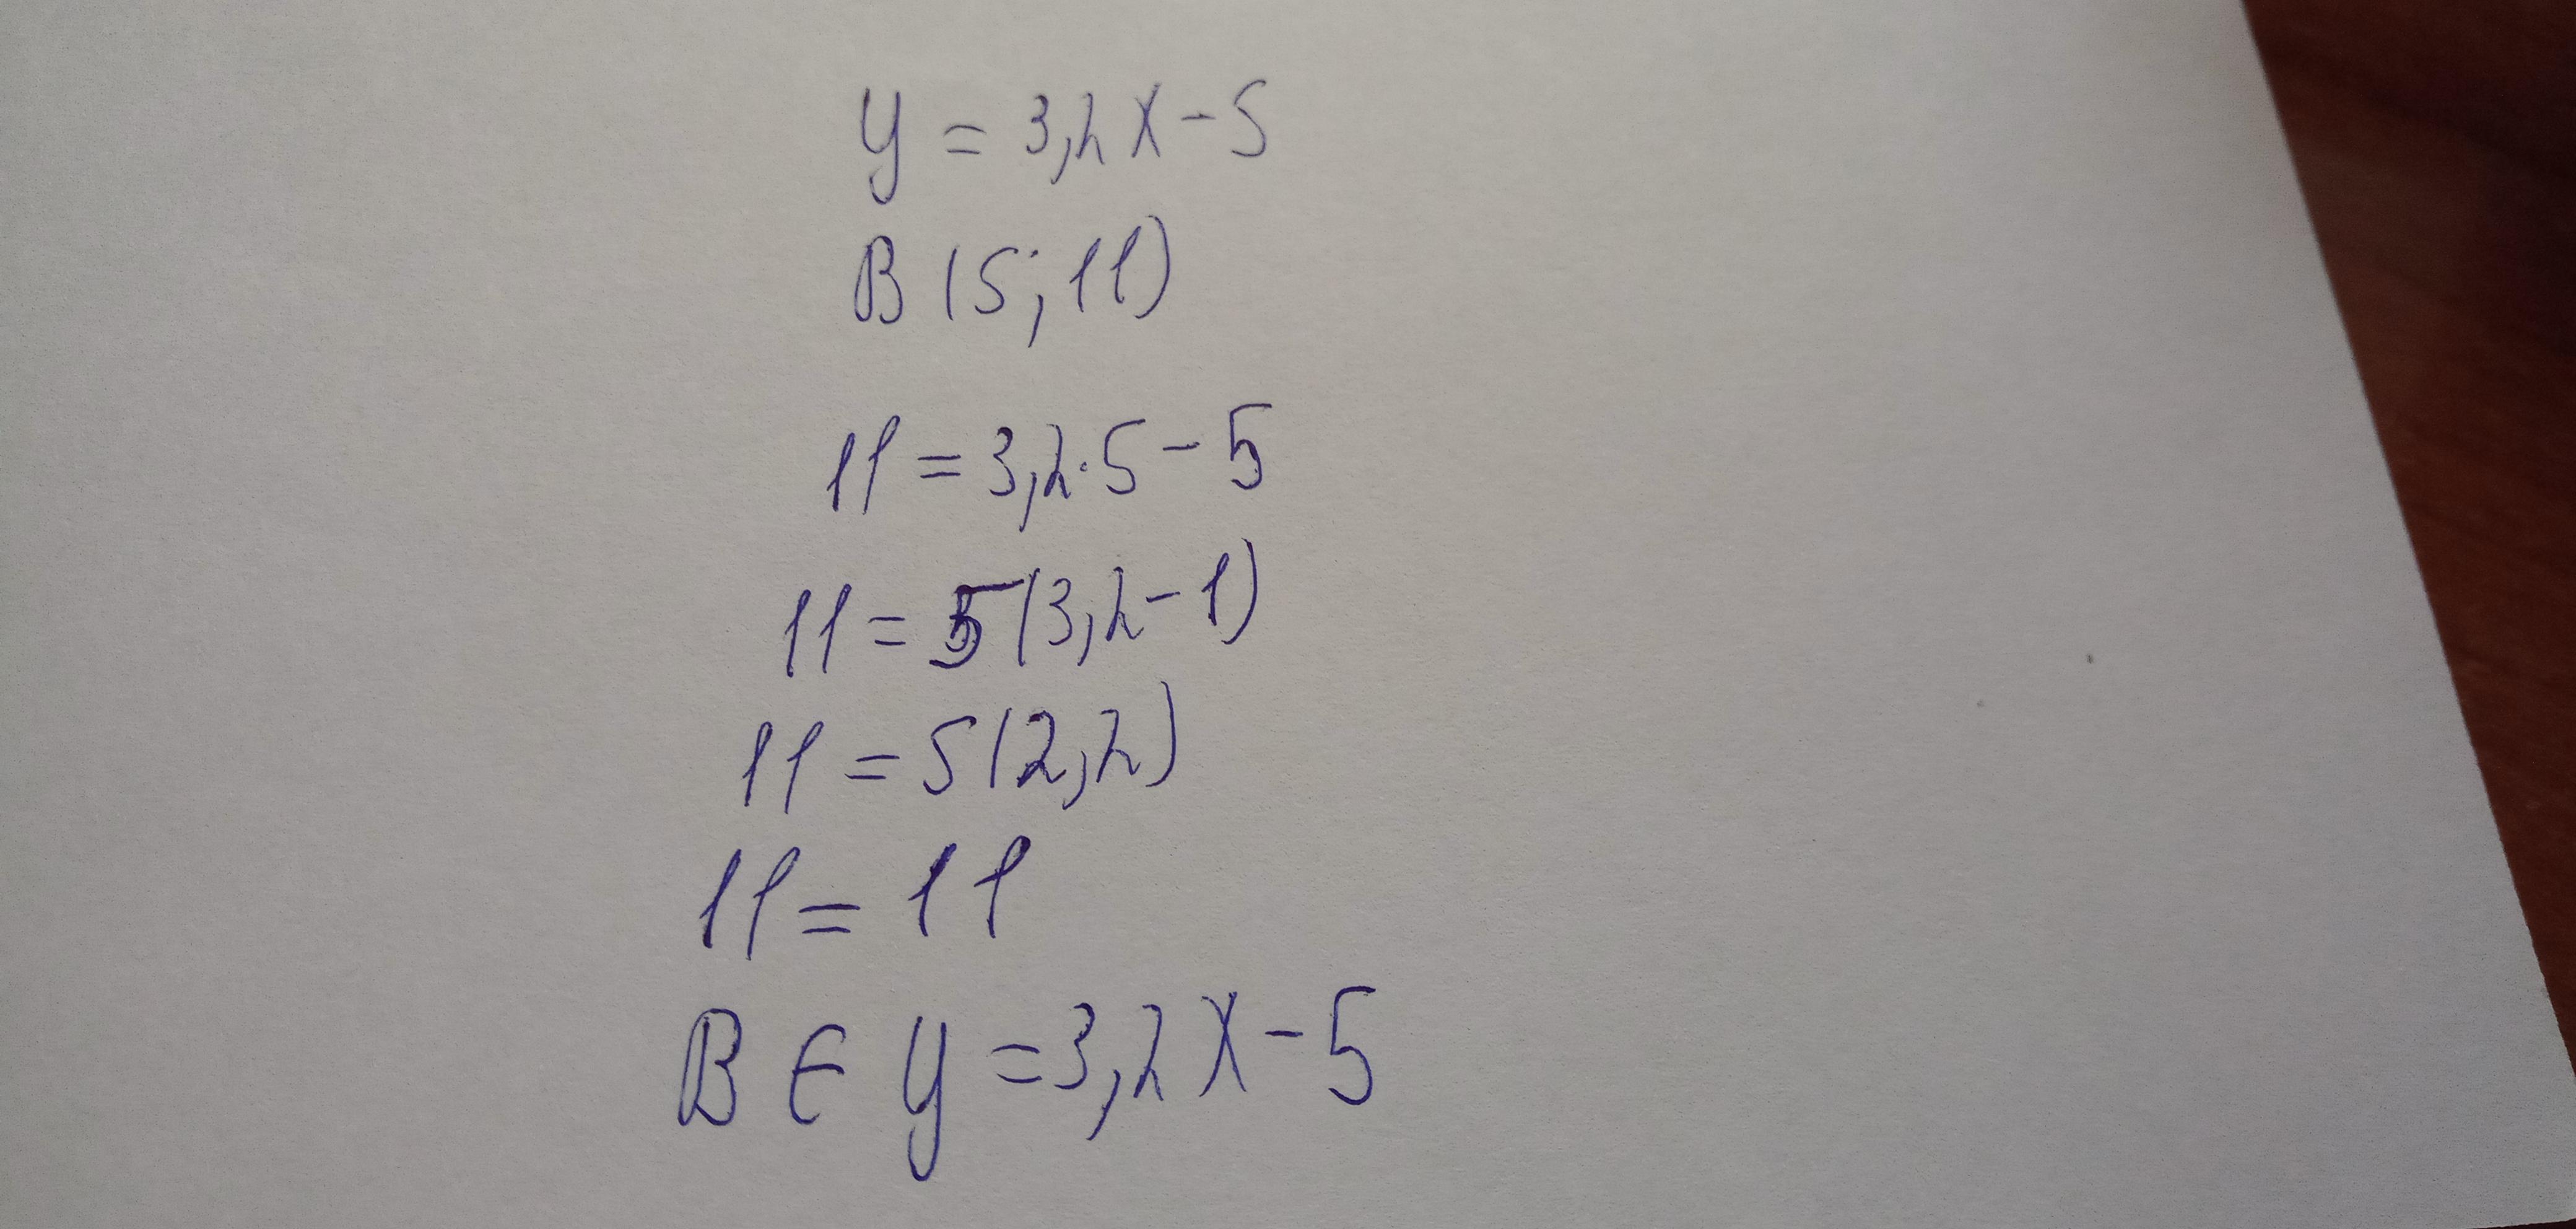 y = 3,2x-5
B (5; 11)
11 = 3,2·5-5
11 = 5(3,2-1)
11 = 5(2,2)
11 = 11
B ∈ y = 3,2x-5